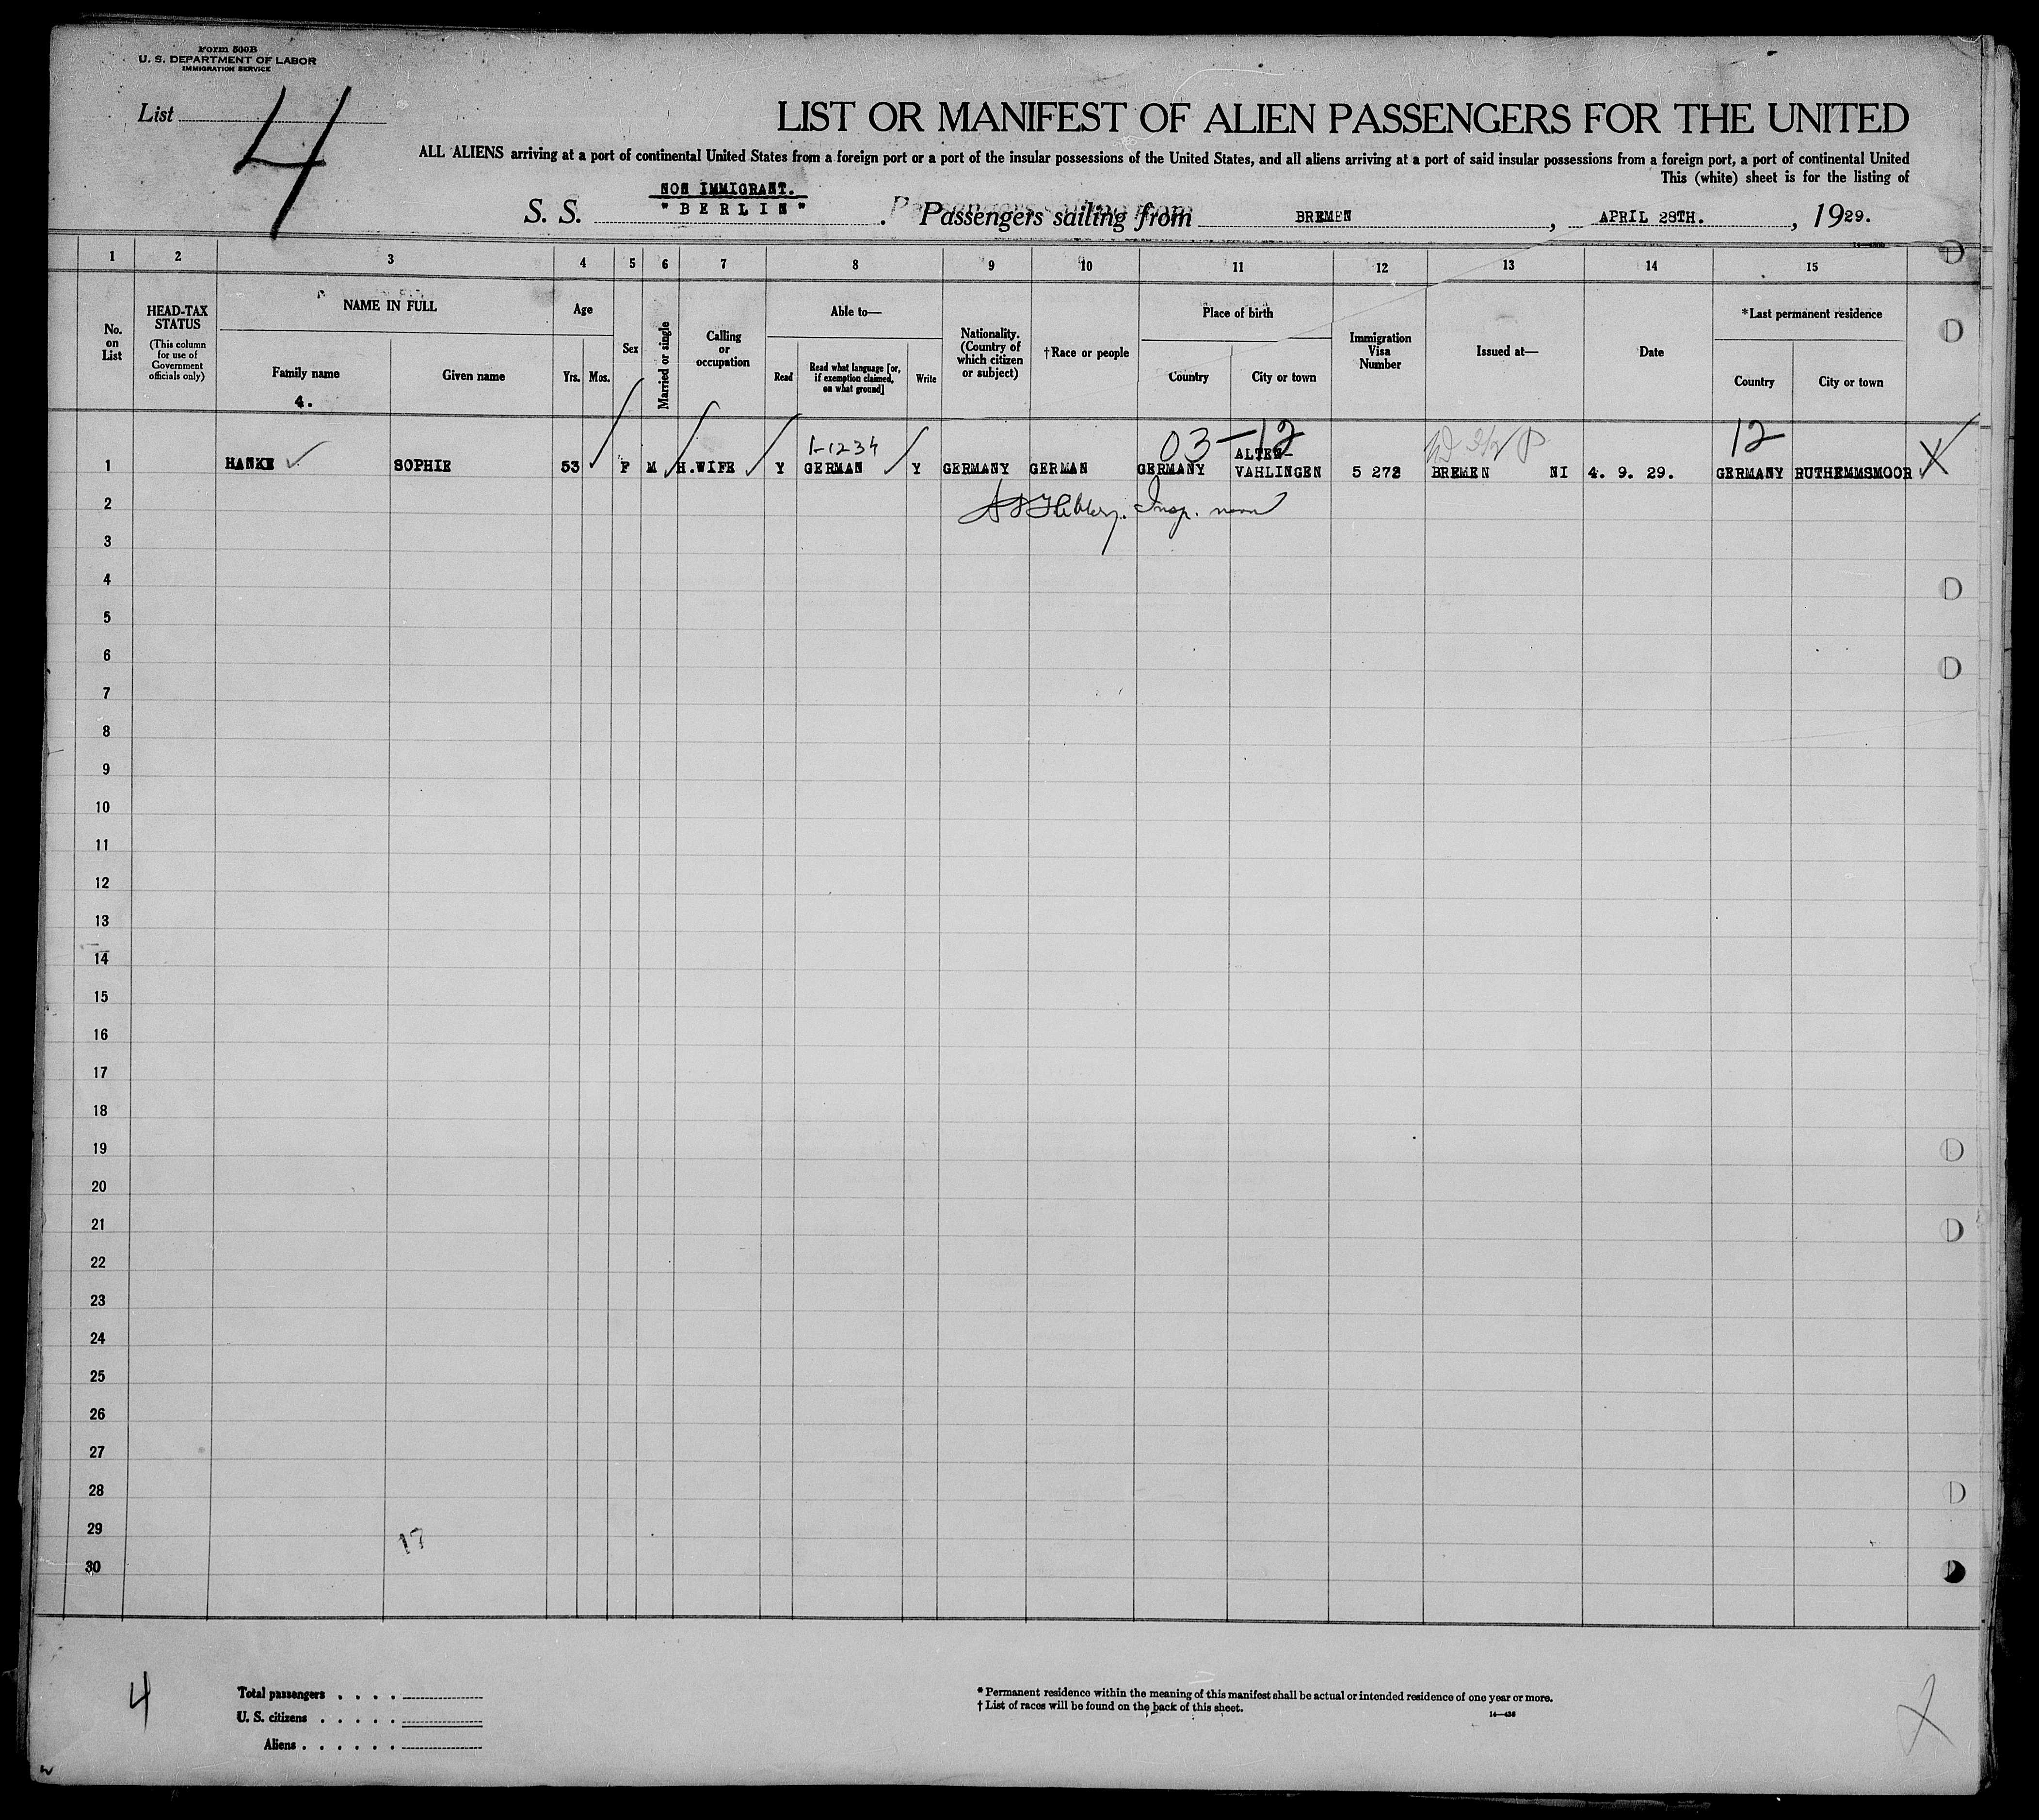 Form 500B
U. S. DEPARTMENT OF LABOR
IMMIGRATION SERVICE
List 4
LIST OR MANIFEST OF ALIEN PASSENGERS FOR THE UNITED
ALL ALIENS arriving at a port of continental United States from a foreign port or a port of the insular possessions of the United States, and all aliens arriving at a port of said insular possessions from a foreign port, a port of continental United
This (white) sheet is for the listing of
NON IMMIGRANT.
S. S. "BERLIN". Passengers sailing from BREMEN, APRIL 28TH., 1929.
1 2 3 4 5 6 7 8 9 10 11 12 13 14 15
No. on List
HEAD-TAX STATUS
(This column for use of Government officials only)
NAME IN FULL
Family name
4.
Given name
Age
Yrs. Mos.
Sex
Married or single
Calling or occupation
Able to—
Read
Read what language [or, if exemption claimed, on what ground]
Write
Nationality. (Country of which citizen or subject)
†Race or people
Place of birth
Country
City or town
Immigration Visa Number
Issued at—
Date
*Last permanent residence
Country
City or town
1-1234 03-12 12
1 HANKE SOPHIE 53 F M H.WIFE Y GERMAN Y GERMANY GERMAN GERMANY ALTEN-VAHLINGEN 5 272 BREMEN NI 4. 9. 29. GERMANY RUTHEMMSMOOR X
2 Insp.
3
4
5
6
7
8
9
10
11
12
13
14
15
16
17
18
19
20
21
22
23
24
25
26
27
28
29 17
30
4
Total passengers . . . .
U. S. citizens . . . . .
Aliens . . . . . .
* Permanent residence within the meaning of this manifest shall be actual or intended residence of one year or more.
† List of races will be found on the back of this sheet.
14—436
X